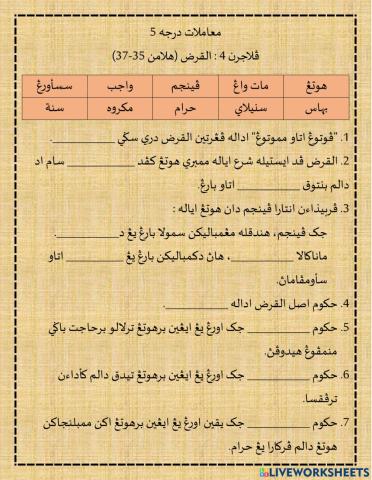 معاملات درجه 5
ڤلاجرن 4 : القرض (هلامن 35-37)
هوتڠ مات واڠ ڤينجم واجب سسأورڠ
بهاس سنيلاي حرام مكروه سنة
1. "ڤوتوڠ اتاو مموتوڠ" اداله ڤڠرتين القرض دري سڬي __________.
2. القرض ڤد ايستيله شرع اياله ممبري هوتڠ كڤد __________ سام اد
دالم بنتوق __________ اتاو بارڠ.
3. ڤربيذاءن انتارا ڤينجم دان هوتڠ اياله :
جك ڤينجم، هندقله مڠمباليكن سمولا بارڠ يڠ د__________.
ماناكالا __________، هاڽ دكمباليكن بارڠ يڠ __________ اتاو
سأومڤامان.
4. حكوم اصل القرض اداله __________.
5. حكوم __________ جك اورڠ يڠ ايڠين برهوتڠ ترلالو برحاجت باڬي
منمڤوڠ هيدوڤڽ.
6. حكوم __________ جك اورڠ يڠ ايڠين برهوتڠ تيدق دالم كأداءن
ترڤقسا.
7. حكوم __________ جك يقين اورڠ يڠ ايڠين برهوتڠ اكن ممبلنجاكن
هوتڠ دالم ڤركارا يڠ حرام.
LIVEWORKSHEETS